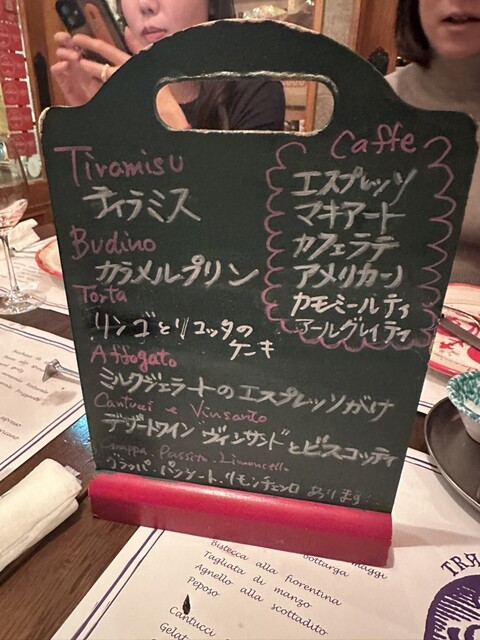 Tiramisu
ティラミス
Budino
カラメルプリン
Torta
リンゴとリコッタの
ケーキ
Affogato
ミルクジェラートのエスプレッソがけ
Cantucci e Vinsanto
デザートワイン ヴィンサントとビスコッティ
Grappa. Passito. Limoncello
グラッパ・パッシート・リモンチェッロ あります
Caffe
エスプレッソ
マキアート
カフェラテ
アメリカーノ
カモミールティ
アールグレイティ
Bistecca alla fiorentina
bottarga
maggi
Tagliata di manzo
Agnello alla scottadito
Peposo
Cantucci
Gelat
TRA